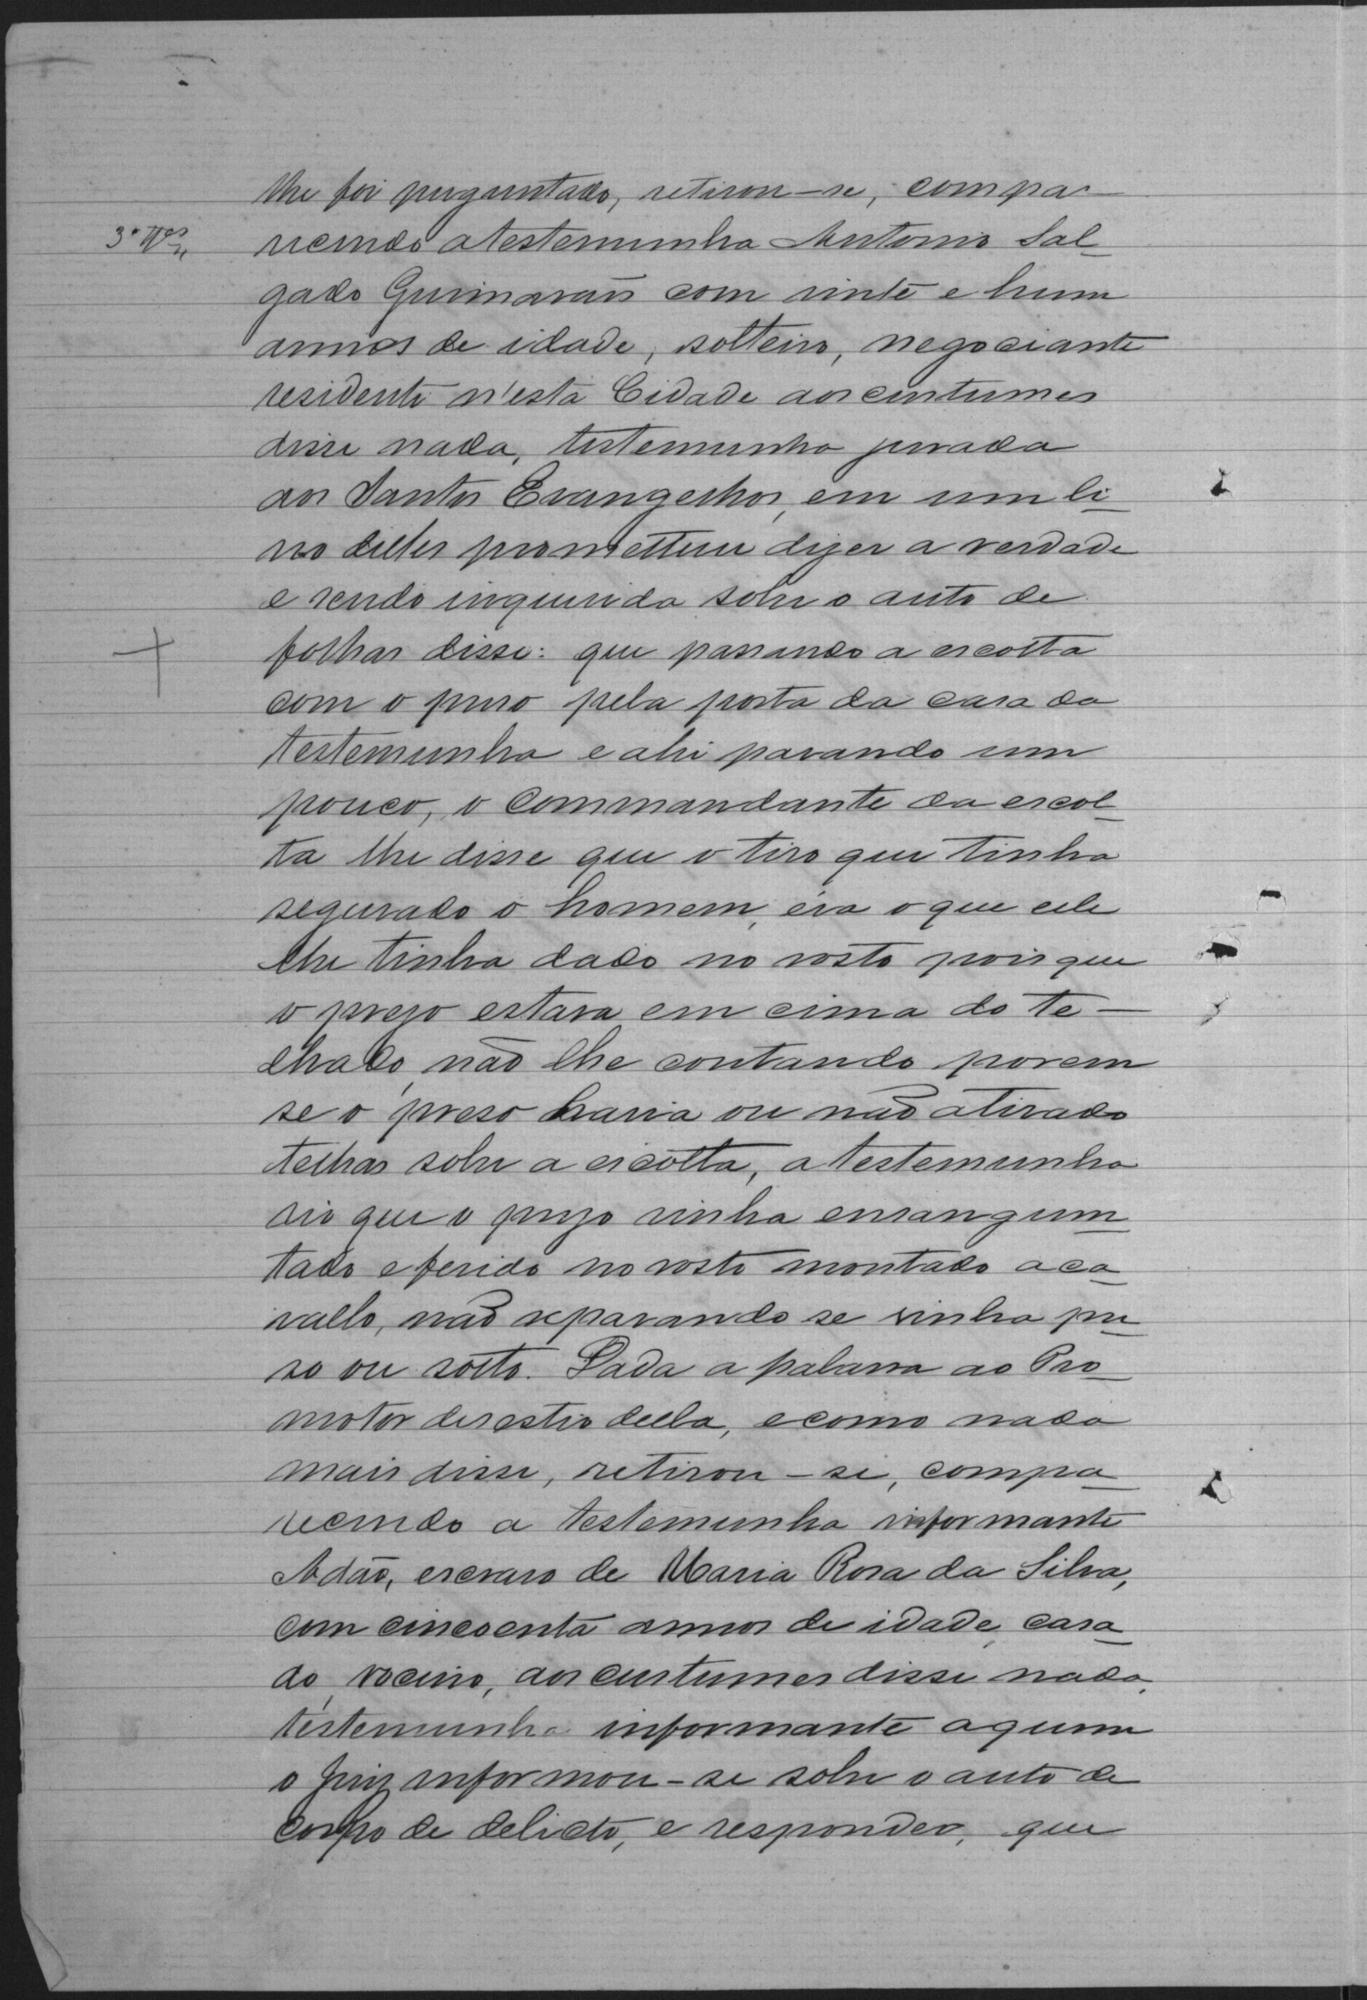 lhe foi perguntado, retirou-se, compa-
3ª Tes
recendo a testemunha Antonio Sal-
gado Guimarães com vinte e hum
annos de idade, solteiro, negociante
residente n'esta Cidade aos custumes
disse nada, testemunha jurada
aos Santos Evangelhos, em um li-
vro delles prometteu dizer a verdade
e sendo inquirida sobre o auto de
folhas disse: que passando a escolta
com o preso pela porta da casa da
testemunha e ahi parando um
pouco, o commandante da escol-
ta lhe disse que o tiro que tinha
segurado o homem, éra o que elle
lhe tinha dado no rosto pois que
o prezo estava em cima do te-
lhado, não lhe contando porem
se o preso havia ou não atirado
telhas sobre a escolta, a testemunha
vio que o prezo vinha ensanguen-
tado e ferido no rosto montado a ca-
vallo, não reparando se vinha pre-
so ou solto. Dada a palavra ao Pro-
motor desestio della, e como nada
mais disse, retirou-se, compa-
recendo a testemunha informante
Adão, escravo de Maria Rosa da Silva,
com cincoenta annos de idade, casa-
do, roceiro, aos custumes disse nada,
testemunha informante a quem
o Juiz informou-se sobre o auto de
corpo de delicto, e respondeo, que